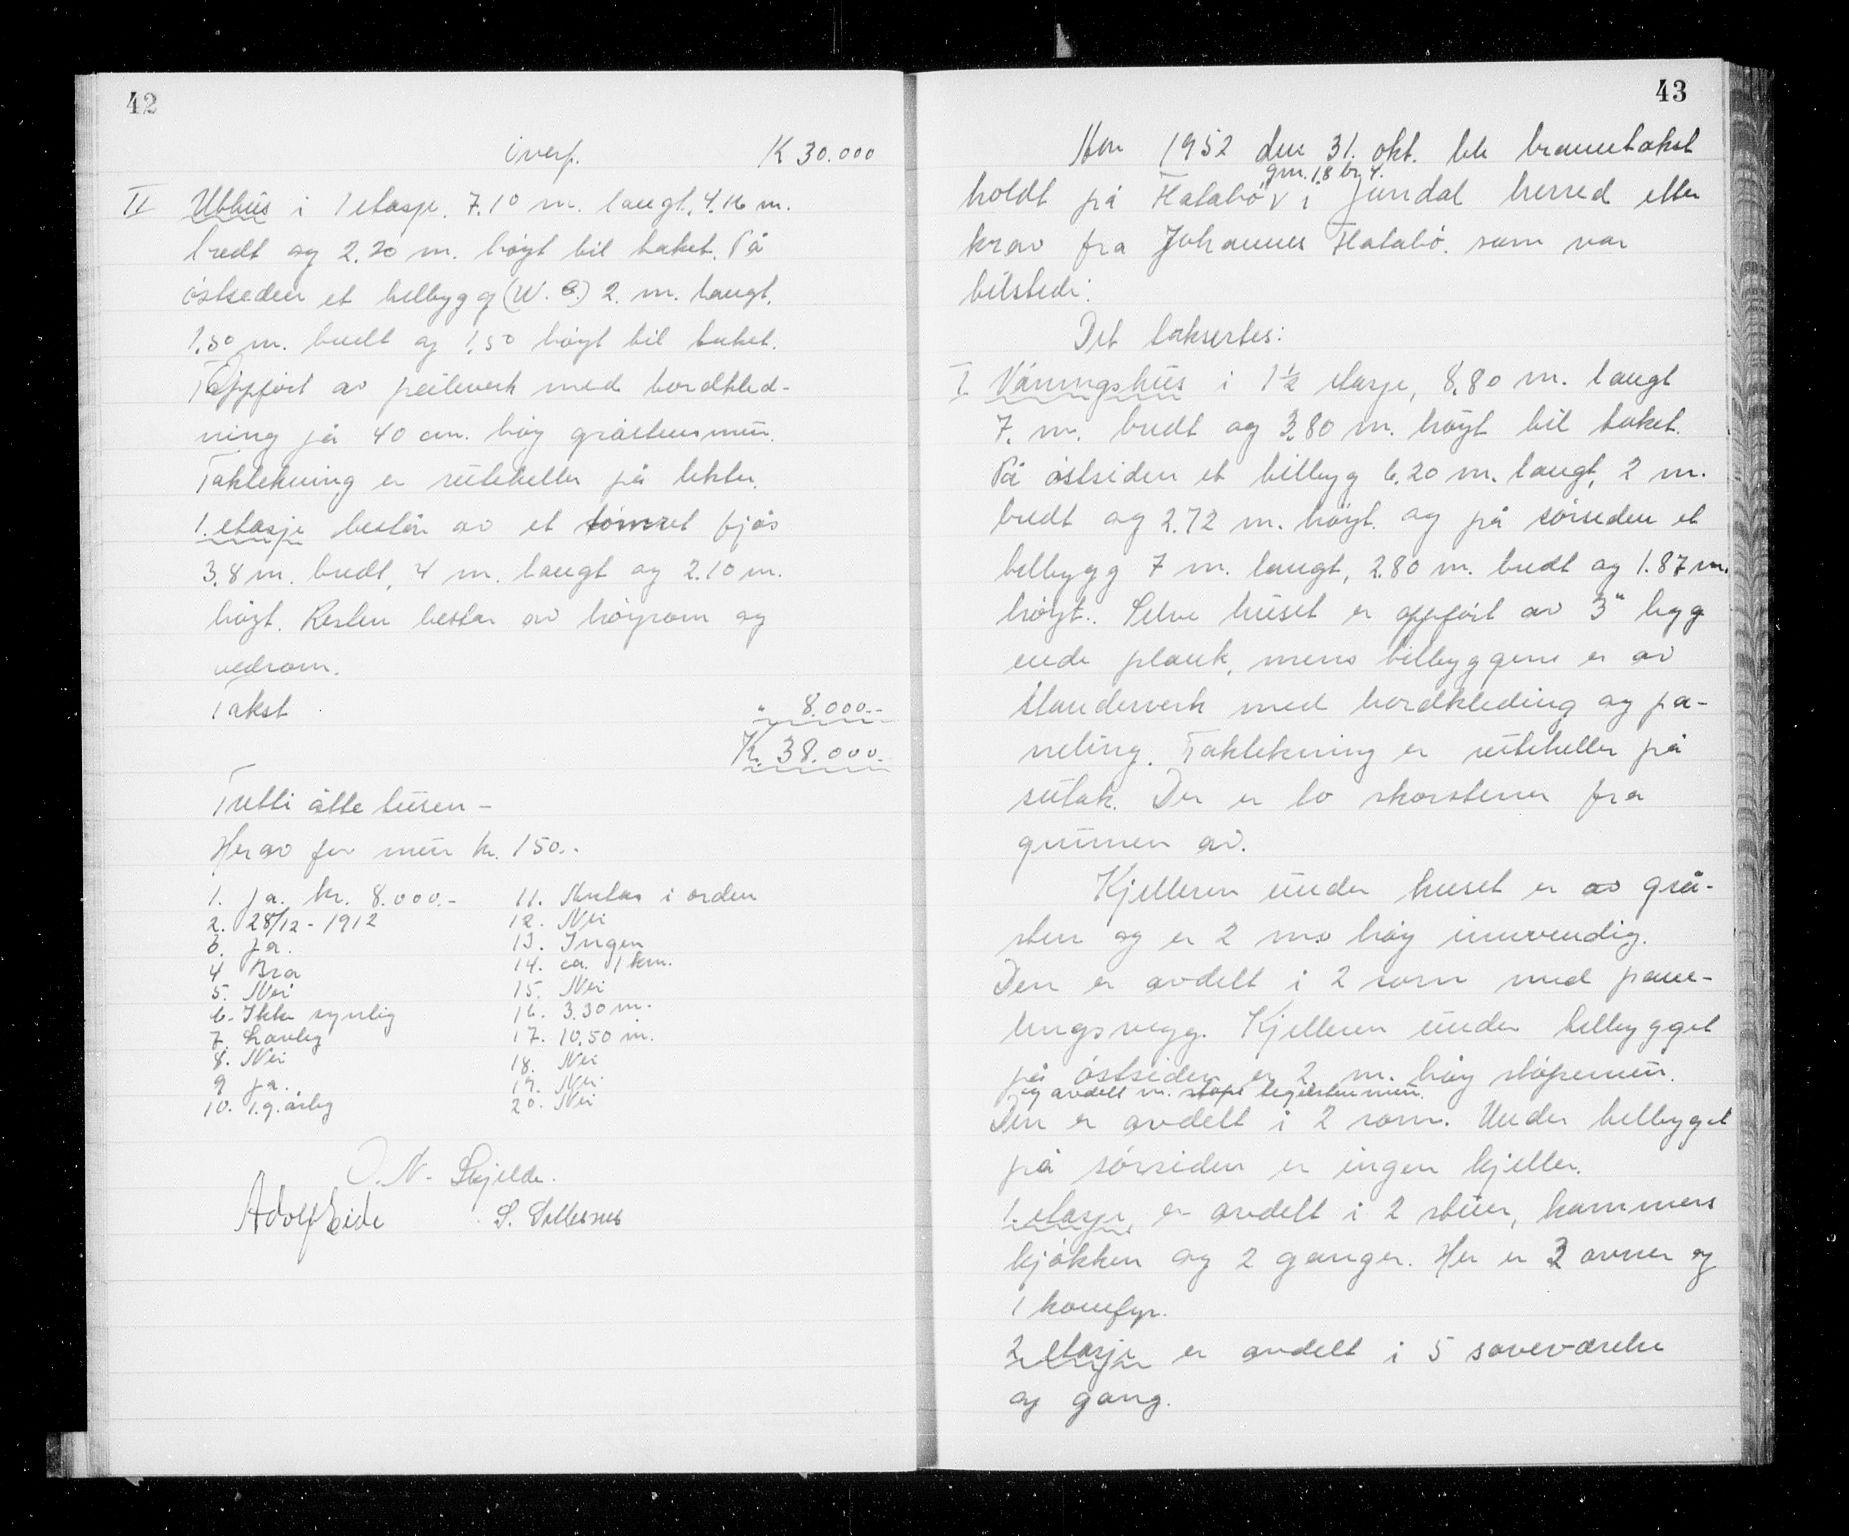 42
överf. K 30.000
II Uthus i 1 etasje, 7.10 m. langt, 4.16 m.
bredt og 2.20 m. høyt til taket. På
østseden et tilbygg (W. C.) 2. m. langt,
1.50 m. bredt og 1,50 høyt til taket.
Oppført av peileverk med bordkled-
ning på 40 cm. høy gråstensmur.
Taktekning er ruteheller på lekter.
1. etasje består av et tømret fjøs
3,8 m. bredt, 4 m. langt og 2.10 m.
høyt. Resten bestar av høyrom og
vedrom.
Takst " 8.000.-
K. 38.000.
Tretti åtte tusen -
Herav for mur kr. 150.-
1. Ja. kr. 8.000.-
2. 28/12 - 1912
3. Ja.
4 Bra
5. Nei
6. Ikke synlig
7. Lovlig
8. Nei
9 Ja.
10. 1.g. årlig
11. Antas i orden
12. Nei
13. Ingen
14. ca. 1 km.
15. Nei
16. 3.30 m.
17. 10,50 m.
18. Nei
19. Nei
20. Nei
O. N. Skjelde.
Adolf Eide S.
43
1952 den 31. okt. ble branntakst
gnr. 18 br. 4.
holdt på Flatabø i Jondal herred etter
krav fra Johannes Flatabø. som var
tilstede:
Det taksertes:
I. Våningshus i 1 1/2 etasje, 8,80 m. langt
7. m. bredt og 3,80 m. høyt til taket.
På østsiden et tilbyg 6,20 m. langt, 2 m.
bredt og 2.72 m. høyt. og på sørseden et
tilbygg 7 m. langt, 2.80 m. bredt og 1.87 m.
høyt.. Selve huset er oppført av 3" ligg
ende plank, mens tilbyggene er av
standerverk med bordkleding og pa-
neling. Taktekning er rutheller på
sutak. Der er to skorstener fra
grunnen av.
Kjelleren under huset er av grå-
sten og er 2 m høy innvendig.
Den er avdelt i 2 rom med pane-
lingsvegg. Kjelleren under tilbygget
på østsiden er 2 m. høy støpemur.
og avdelt m. støpt teglstenmur.
Den er avdelt i 2 rom. Under tilbyget
på sørsiden er ingen kjeller.
1. etasje er avdelt i 2 stuer, kammers
kjøkken og 2 ganger. Her er 2 ovner og
1 komfyr.
2 etasje er avdelt i 5 soveværelse
og gang.